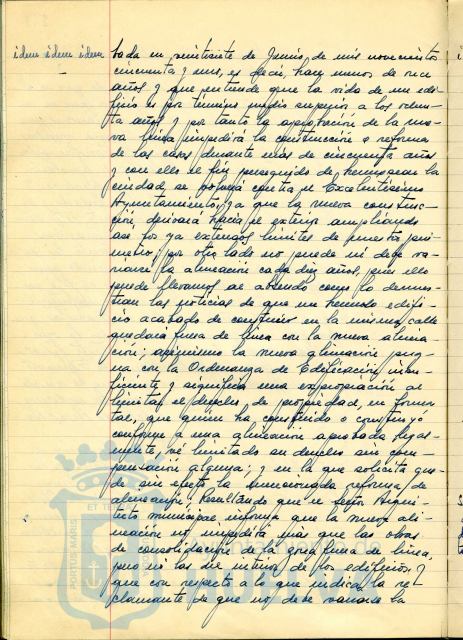 idem idem idem
bada en veintisiete de Junio de mil novecientos
cincuenta y uno, es decir, hace menos de diez
años y que entiende que la vida de un edi-
ficio es por término medio superior a los ochen-
ta años y por tanto la aprobación de la nue-
va línea impedirá la construcción o reforma
de las casas durante más de cincuenta años
y con ello el fin perseguido de hermosear la
ciudad, se volverá contra el Excelentísimo
Ayuntamiento, ya que la nueva construc-
ción, derivará hacia el exterior ampliando
así los ya extensos límites de nuestro perí-
metro; por otro lado no puede ni debe va-
riarse la alineación cada diez años, pues ello
puede llevarnos al absurdo como lo demues-
tran las noticias de que un hermoso edifi-
cio acabado de construir en la misma calle
quedará fuera de línea con la nueva alinea-
ción; asimismo la nueva alineación pug-
na con la Ordenanza de Edificación
y significa una expropiación al
limitar el derecho de propiedad, en forma
tal, que quien ha construido o construyó
conforme a una alineación aprobada legal-
mente, vé limitado su derecho sin com-
pensación alguna; y en la que solicita que-
de sin efecto la mencionada reforma de
alineación; Resultando que el señor Arqui-
tecto municipal informa que la nueva ali-
neación no impedirá más que las obras
de consolidación de la zona fuera de línea,
pero no las de interior de los edificios y
que con respecto a lo que indica la re-
clamante de que no debe variarse la
PORTUS MARIS
ET TE